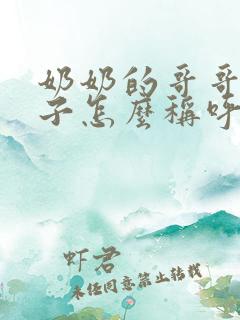 奶奶的哥哥
子怎麼稱呼
虾君
未经同意禁止转载